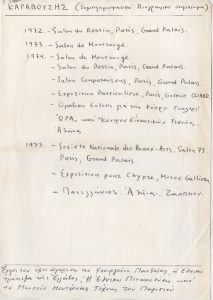 ΚΑΡΑΒΟΥΖΗΣ (Συμπληρωματικό Βιογραφικό σημείωμα)
1972 - Salon du Dessin, Paris, Grand Palais.
1973 - Salon de Montrouge.
1974 - Salon de Montrouge.
- Salon du Dessin, Paris, Grand Palais.
- Salon Comparaisons, Paris, Grand Palais.
- Exposition Particulière, Paris, Galerie
- Ομαδική έκθεση για την Κύπρο
"ΩΡΑ" και "Κέντρον Εικαστικών Τεχνών"
Αθήνα.
1975 - Société Nationale des Beaux-Arts, Salon 75,
Paris, Grand Palais.
- Exposition pour Chypre, Musée Galliera,
- Πανελλήνιος, Αθήνα. Ζάππειον.
Έργα του έχει αγοράσει το Υπουργείον Παιδείας, η Εθνική
Τράπεζα της Ελλάδος, η Εθνική Πινακοθήκη και
το Μουσείο Μοντέρνας Τέχνης του Παρισιού.